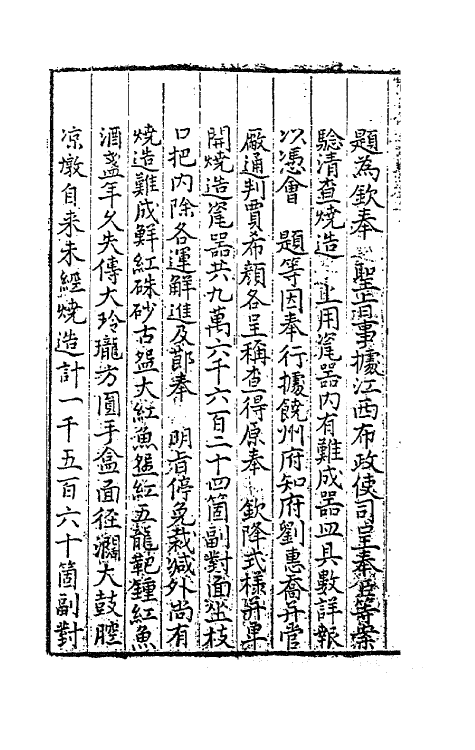 題為欽奉 聖旨事據江西布政使司呈奉等案
驗清查燒造 上用瓷器內有難成器皿具數詳報
以憑會 題等因奉行據饒州府知府劉惠喬并管
廠通判賈希顏各呈稱查得原奉 欽降式樣并單
開燒造瓷器共九萬六千六百二十四箇副對面坐枝
口把內除各運解進及節奉 明旨停免裁減外尚有
燒造難成鮮紅硃砂古盌大紅魚盌紅五龍靶鍾紅魚
酒盞年久失傳大玲瓏方圓手盒面徑濶大鼓腔
凉墩自来未經燒造計一千五百六十箇副對